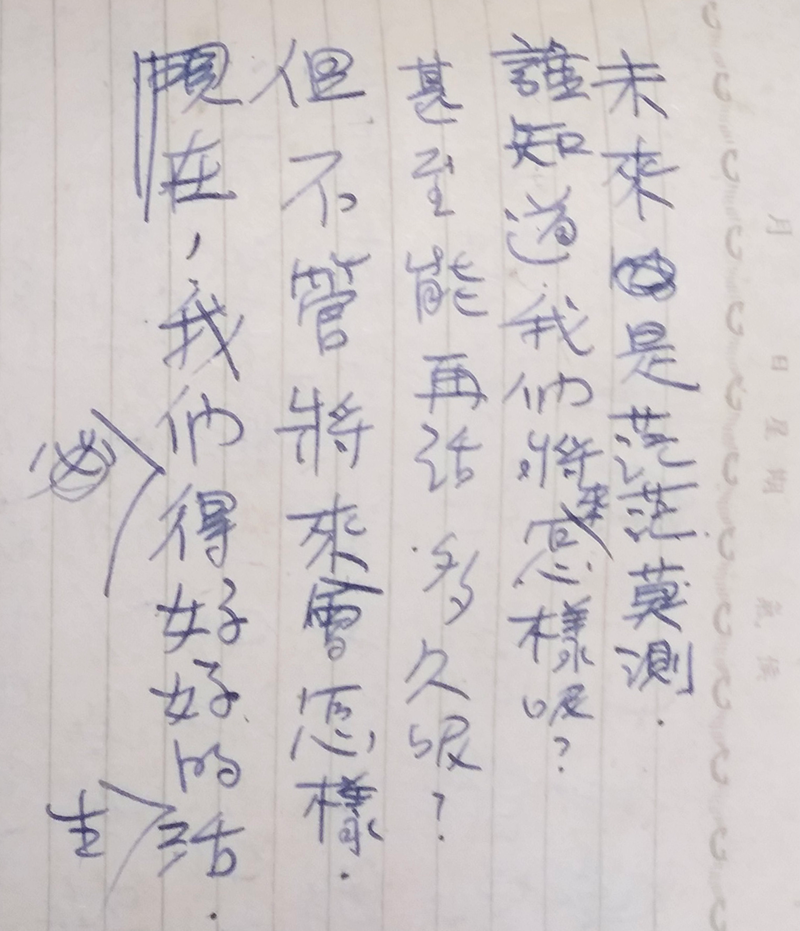 未來是茫茫莫測.
誰知道我們將來怎樣呢?
甚至能再活多久呢?
但不管將來會怎樣.
現在,我們得好好的生活.
月 日 星期